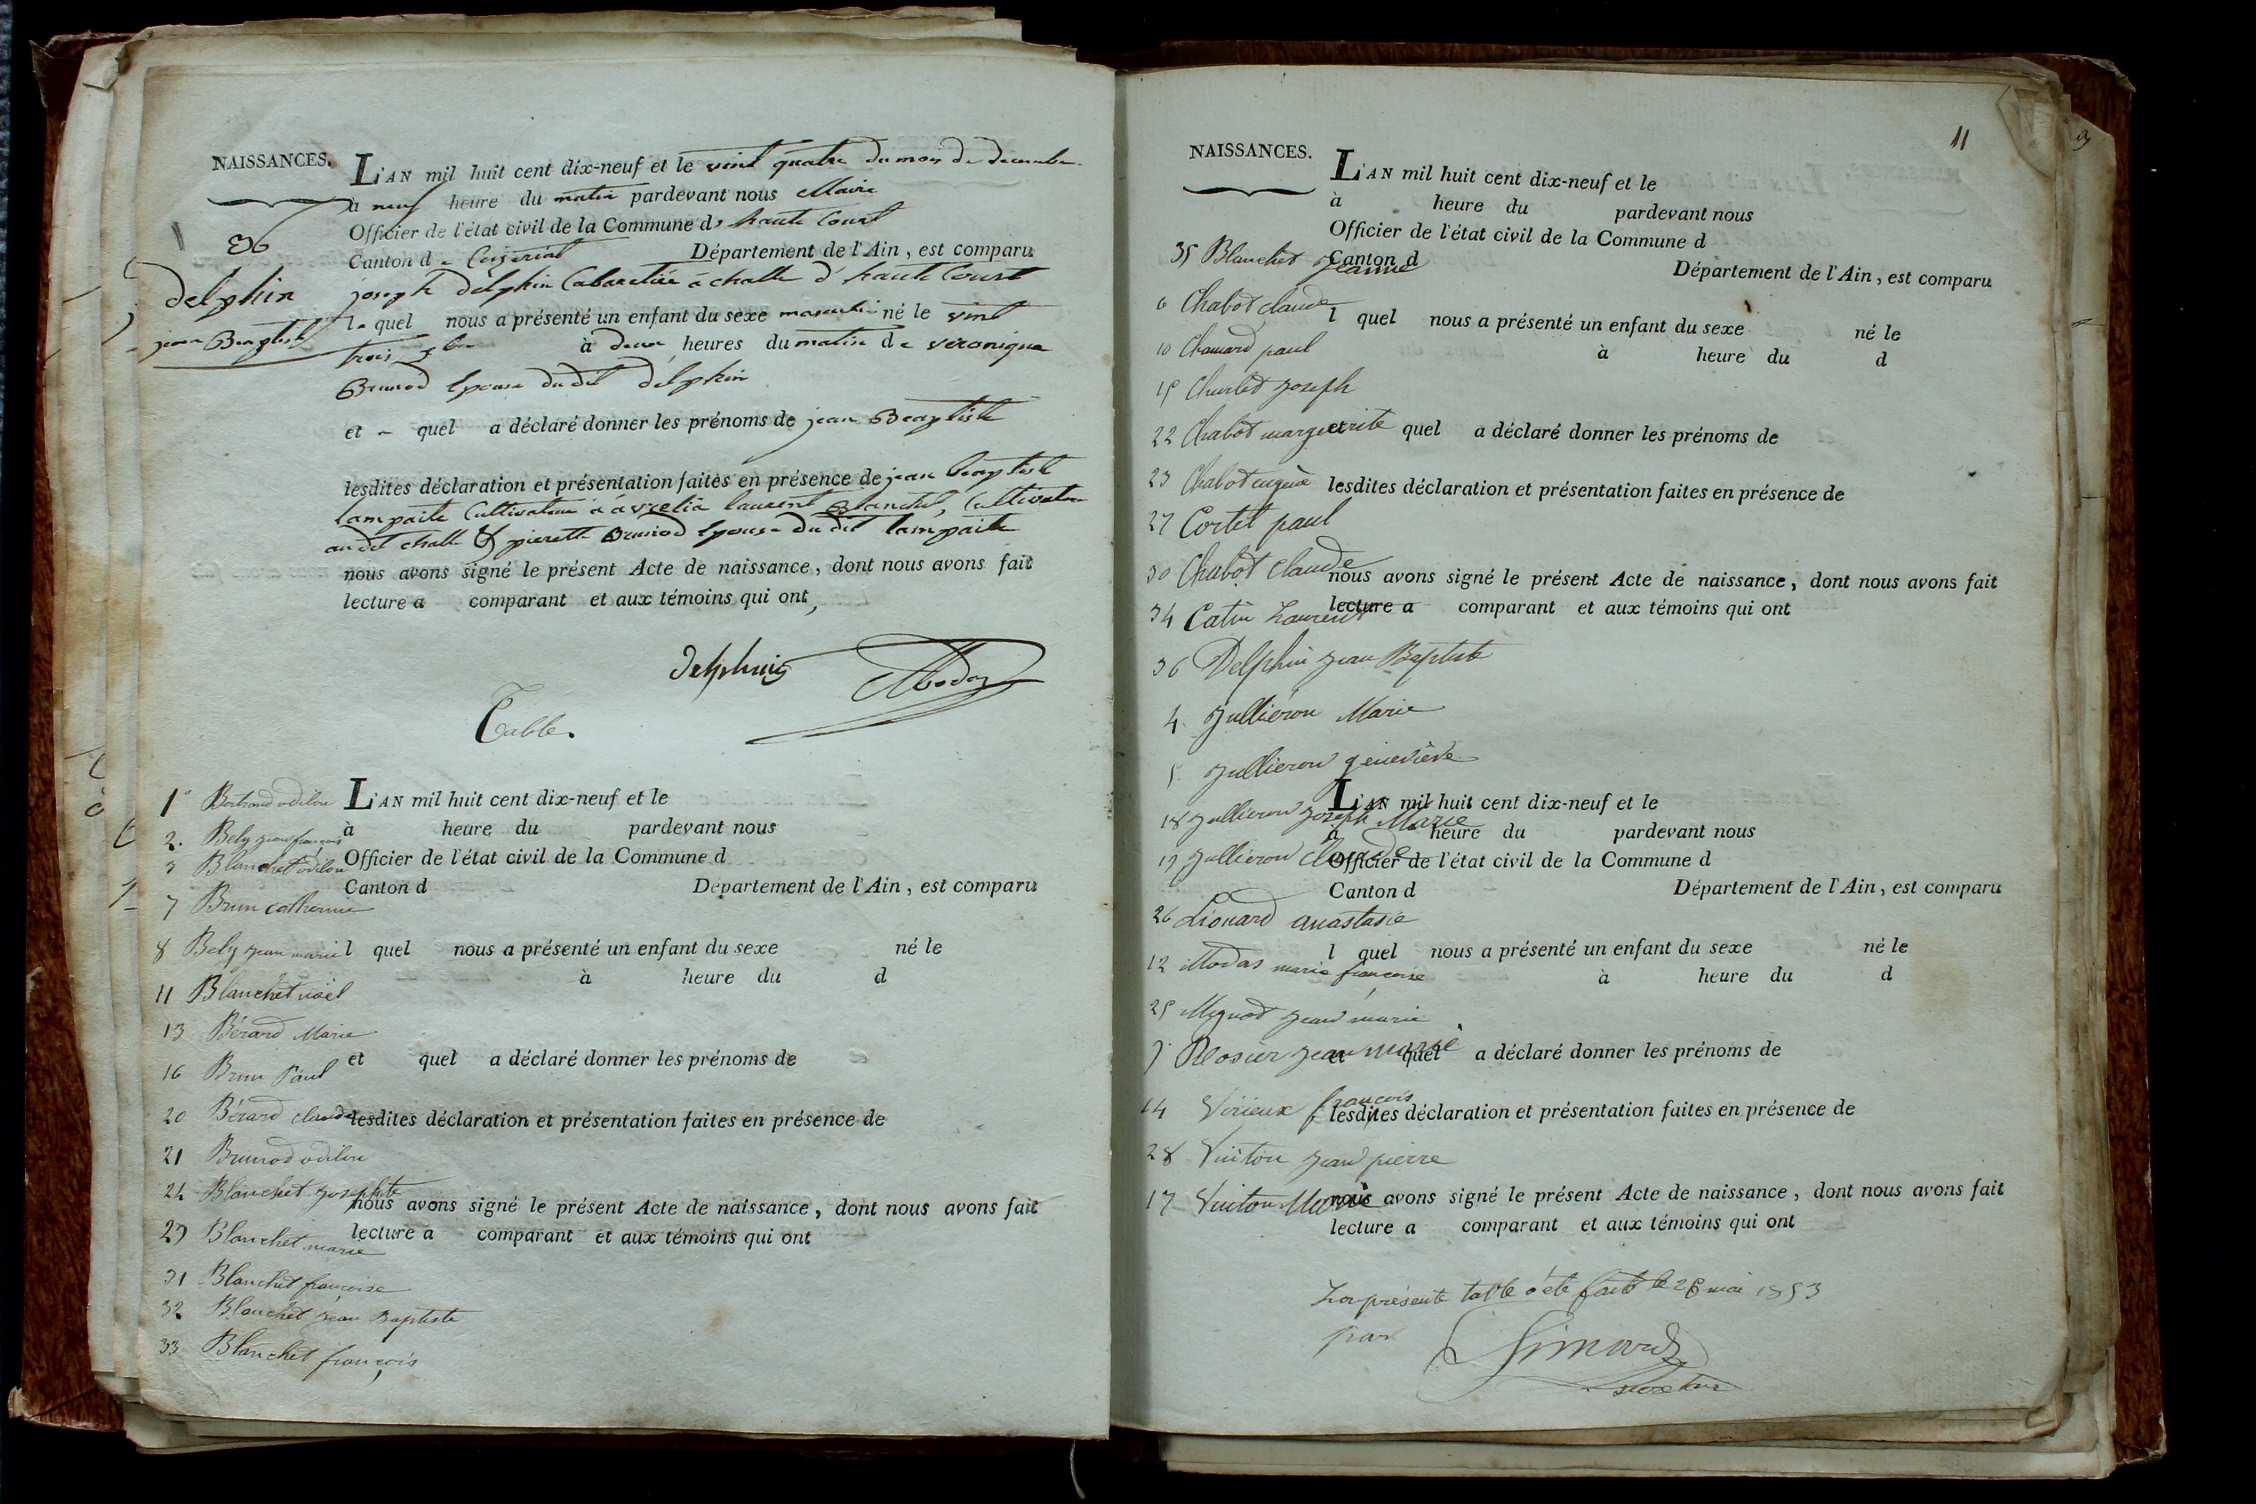 NAISSANCES.
36
delphin
jean Beaptiste
L'AN mil huit cent dix-neuf et le vint quatre du mois de decembre
à neuf heure du matin pardevant nous Maire
Officier de l'état civil de la Commune d haute Court
Canton de Ceizeriat Département de l'Ain, est comparu
joseph delphin Cabaretier a challe d'haute Court
le quel nous a présenté un enfant du sexe masculin né le vint
trois à deux heures du matin de veronique
Brunod Epouse du dit delphin
et quel a déclaré donner les prénoms de jean Beaptiste
lesdites déclaration et présentation faites en présence de jean beaptiste
lampaite Cultivateur a laurent Blanchet, Cultivateur
au dit challe & pierette Brunod Epouse du dit lampaite
nous avons signé le présent Acte de naissance, dont nous avons fait
lecture a comparant et aux témoins qui ont
Table.
1° Bertrand odilon
2. Bely jean françois
3 Blanchet odilon
7 Brun catherine
8 Bely jean marie
11 Blanchet noël
13 Bérard Marie
16 Brun Paul
20 Bérard claude
21 Brunod odilon
24 Blanchet josephte
29 Blanchet marie
31 Blanchet françoise
32 Blanchet jean Baptiste
33 Blanchet françois
L'AN mil huit cent dix-neuf et le
à heure du pardevant nous
Officier de l'état civil de la Commune d
Canton d Département de l'Ain, est comparu
l quel nous a présenté un enfant du sexe né le
à heure du d
et quel a déclaré donner les prénoms de
lesdites déclaration et présentation faites en présence de
nous avons signé le présent Acte de naissance, dont nous avons fait
lecture a comparant et aux témoins qui ont
11
NAISSANCES.
35 Blanchet jeanne
6 Chabot claude
10 Chanard paul
15 Charlet joseph
22 Chabot marguerite
23 Chabot
27 Cortet paul
30 Chabot claude
34 Catin Laurent
36 Delphin jean Baptiste
4. Jullieron Marie
5. Jullieron geneviève
18 Jullieron joseph Marie
19 Jullieron claude
26 Lionard anastasie
12 Modas marie françoise
25 Mignot jean marie
9. Rosier jean marie
14 Vérieux françois
28 Vuiton jean pierre
17 Vuiton Marie
L'AN mil huit cent dix-neuf et le
à heure du pardevant nous
Officier de l'état civil de la Commune d
Canton d Département de l'Ain, est comparu
l quel nous a présenté un enfant du sexe né le
à heure du d
et quel a déclaré donner les prénoms de
lesdites déclaration et présentation faites en présence de
nous avons signé le présent Acte de naissance, dont nous avons fait
lecture a comparant et aux témoins qui ont
L'AN mil huit cent dix-neuf et le
à heure du pardevant nous
Officier de l'état civil de la Commune d
Canton d Département de l'Ain, est comparu
l quel nous a présenté un enfant du sexe né le
à heure du d
et quel a déclaré donner les prénoms de
lesdites déclaration et présentation faites en présence de
nous avons signé le présent Acte de naissance, dont nous avons fait
lecture a comparant et aux témoins qui ont
La présente table a été faite le 28 mai 1853
par
Simard